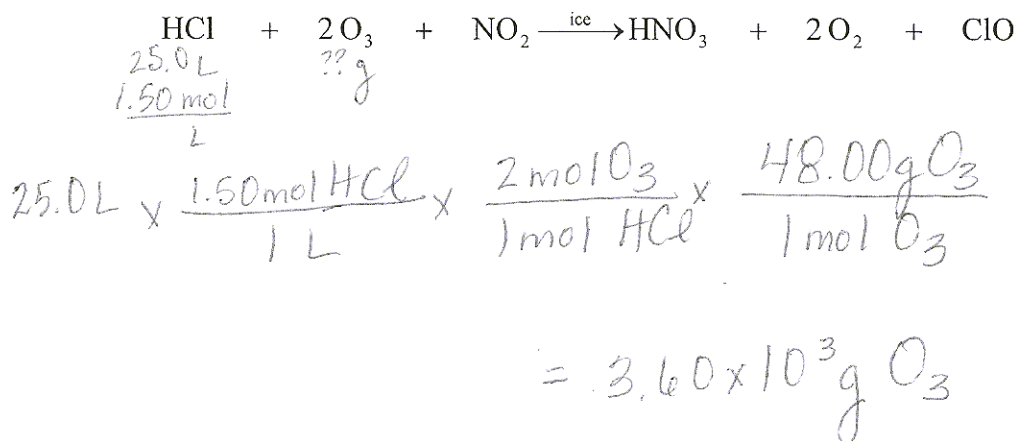 HCl + 2 O₃ + NO₂ —ice→ HNO₃ + 2 O₂ + ClO
25.0 L ?? g
1.50 mol / L
25.0 L x 1.50 mol HCl / 1 L x 2 mol O₃ / 1 mol HCl x 48.00 g O₃ / 1 mol O₃
= 3.60 x 10³ g O₃